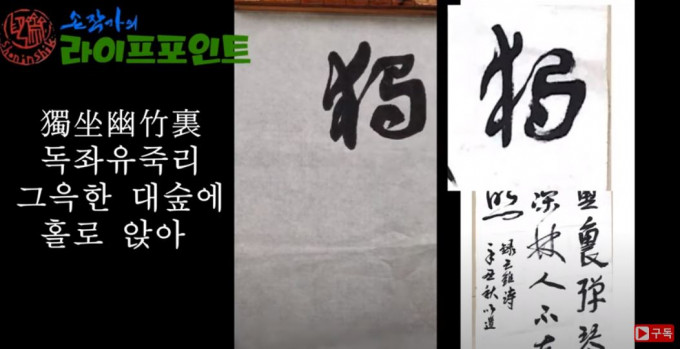 손작가의
라이프포인트
獨坐幽竹裏
독좌유죽리
그윽한 대숲에
홀로 앉아
獨
獨
裏彈琴
深林人不
照
録王維詩
辛丑秋
구독